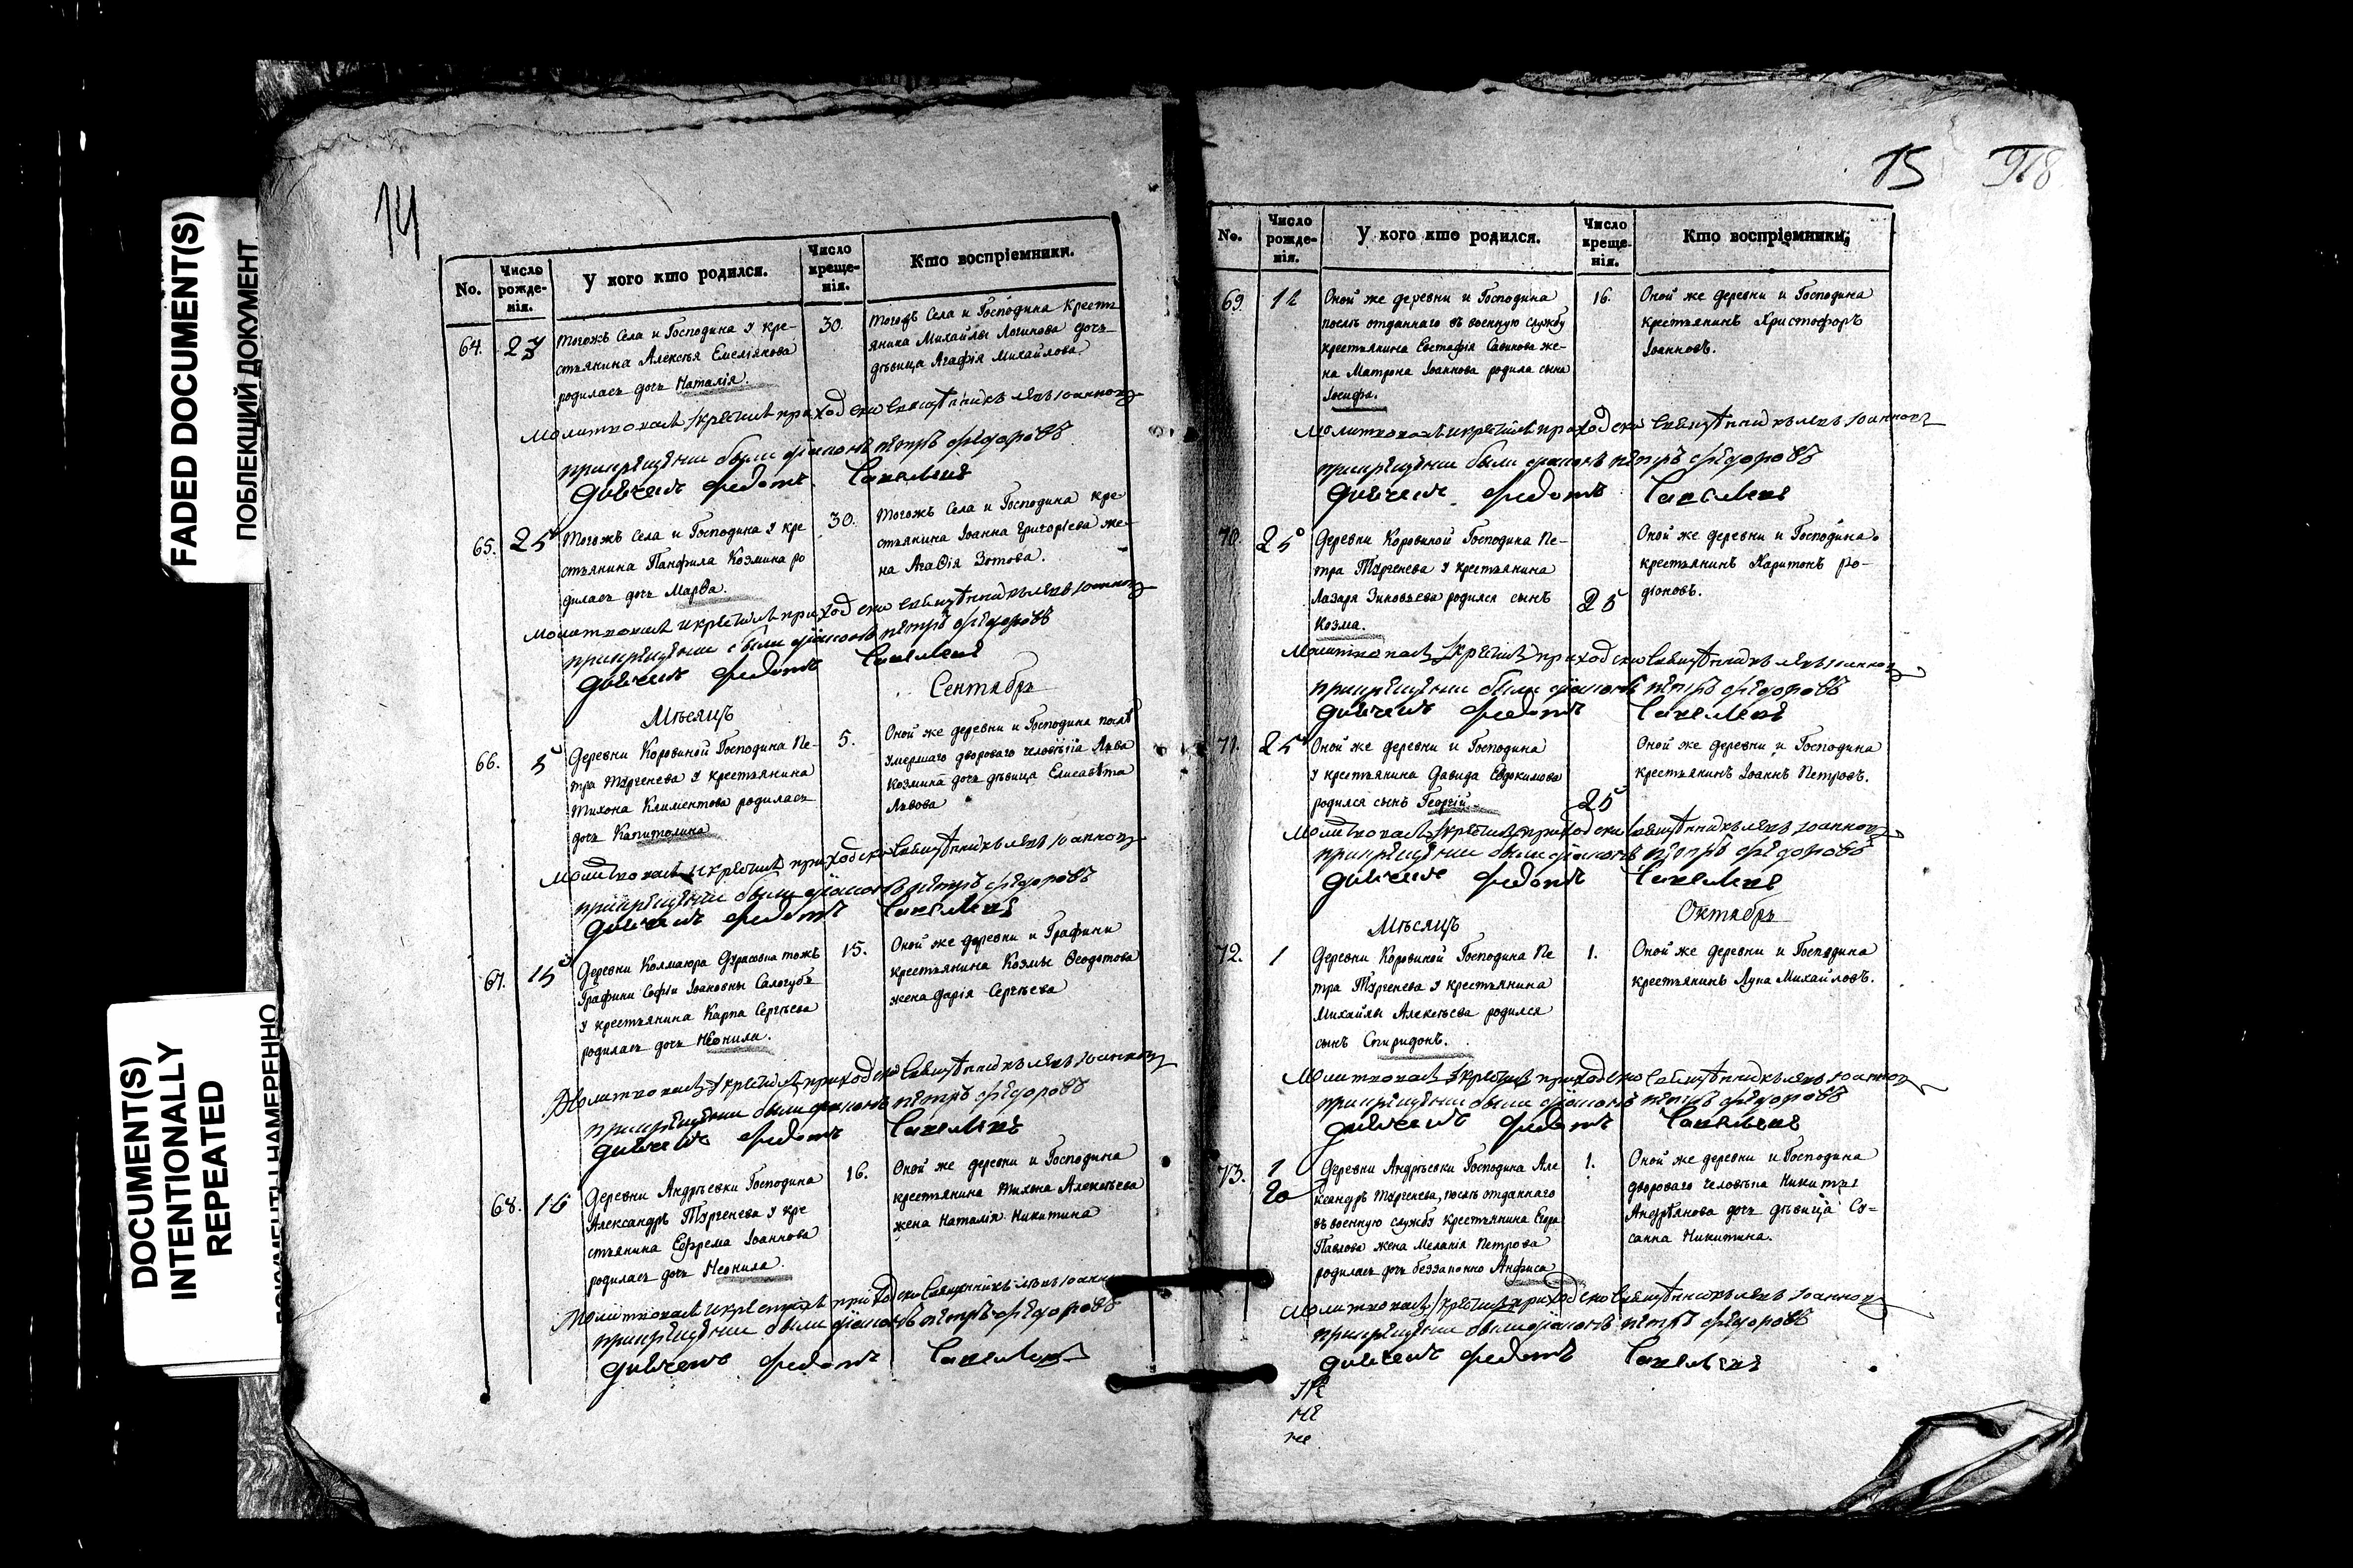 FADED DOCUMENT(S)
ПОБЛЕКЩИЙ ДОКУМЕНТ
DOCUMENT(S)
INTENTIONALLY
REPEATED
НАМЕРЕННО
14
No.
Число рожде-нія.
У кого кто родился.
Число креще-нія.
Кто воспріемники.
64.
Тогожъ Села и Господина у кре-
стьянина Алексѣя Емеліянова
родилась дочь Наталія.
30.
Тогожъ Села и Господина Кресть
янина Михайлы Логинова дочь
дѣвица Агафія Михайлова.
Молитвовалъ и крестилъ приходской священникъ Левъ Іоанновъ
при крещеніи были діаконъ Петръ Федоровъ
дьячекъ Федотъ Савельевъ
65.
25
Тогожъ Села и Господина у кре
стьянина Панфила Козмина ро
дилась дочь Марѳа.
30.
Тогожъ Села и Господина кре
стьянина Іоанна Григоріева же-
на Агаѳія Зотова.
Молитвовалъ и крестилъ приходской священникъ Левъ Іоанновъ
при крещеніи были діаконъ Петръ Федоровъ
дьячекъ Федотъ Савельевъ
Мѣсяцъ
Сентябрь
66.
5
Деревни Коровиной Господина Пе-
тра Тургенева у крестьянина
Тихона Климентова родилась
дочь Капитолина
5.
Оной же деревни и Господина послѣ
умершаго двороваго человѣка Льва
Козмина дочь дѣвица Елисавѣта
Львова
Молитвовалъ и крестилъ приходской священникъ Левъ Іоанновъ
при крещеніи были діаконъ Петръ Федоровъ
дьячекъ Федотъ Савельевъ
67.
15
Деревни Колмаюра Дурасовка тожъ
Графини Софіи Іоановны Салогубъ
у крестьянина Карпа Сергѣева
родилась дочь Неонила.
15.
Оной же деревни и Графини
крестьянина Козмы Ѳеодотова
жена Дарія Сергѣева
Молитвовалъ и крестилъ приходской священникъ Левъ Іоанновъ
при крещеніи были діаконъ Петръ Федоровъ
дьячекъ Федотъ Савельевъ
68.
16
Деревни Андрѣевки Господина
Александръ Тургенева у кре
стьянина Ефрема Іоаннова
родилась дочь Неонила.
16.
Оной же деревни и Господина
крестьянина Тихона Алексѣева
жена Наталія Никитина
Молитвовалъ и крестилъ приходской священникъ Левъ Іоанновъ
при крещеніи были діаконъ Петръ Федоровъ
дьячекъ Федотъ Савельевъ
15
918
No.
Число рожде-нія.
У кого кто родился.
Число креще-нія.
Кто воспріемники.
69.
Оной же деревни и Господина
послѣ отданнаго въ военную службу
крестьянина Евстафія Савинова же-
на Матрона Іоаннова родила сына
Іосифа.
16.
Оной же деревни и Господина
крестьянинъ Христофоръ
Іоанновъ.
Молитвовалъ и крестилъ приходской священникъ Левъ Іоанновъ
при крещеніи были діаконъ Петръ Федоровъ
дьячекъ Федотъ Савельевъ
70.
25
Деревни Коровиной Господина Пе-
тра Тургенева у крестьянина
Лазаря Зиновьева родился сынъ
Козма.
25
Оной же деревни и Господина
крестьянинъ Харитонъ Ро-
діоновъ.
Молитвовалъ и крестилъ приходской священникъ Левъ Іоанновъ
при крещеніи были діаконъ Петръ Федоровъ
дьячекъ Федотъ Савельевъ
71.
25
Оной же деревни и Господина
у крестьянина Давида Евдокимова
родился сынъ Георгій.
25
Оной же деревни и Господина
крестьянинъ Іоаннъ Петровъ.
Молитвовалъ и крестилъ приходской священникъ Левъ Іоанновъ
при крещеніи были діаконъ Петръ Федоровъ
дьячекъ Федотъ Савельевъ
Мѣсяцъ
Октябрь
72.
1
Деревни Коровиной Господина Пе
тра Тургенева у крестьянина
Михайлы Алексѣева родился
сынъ Спиридонъ.
1.
Оной же деревни и Господина
крестьянинъ Лупа Михайловъ.
Молитвовалъ и крестилъ приходской священникъ Левъ Іоанновъ
при крещеніи были діаконъ Петръ Федоровъ
дьячекъ Федотъ Савельевъ
73.
1
Деревни Андрѣевки Господина Але
ксандръ Тургенева, послѣ отданнаго
въ военную службу крестьянина Егора
Павлова жена Меланія Петрова
родилась дочь беззаконно Анфиса
1.
Оной же деревни и Господина
двороваго человѣка Никиты
Андреянова дочь дѣвица Су-
санна Никитина.
Молитвовалъ и крестилъ приходской священникъ Левъ Іоанновъ
при крещеніи были діаконъ Петръ Федоровъ
дьячекъ Федотъ Савельевъ